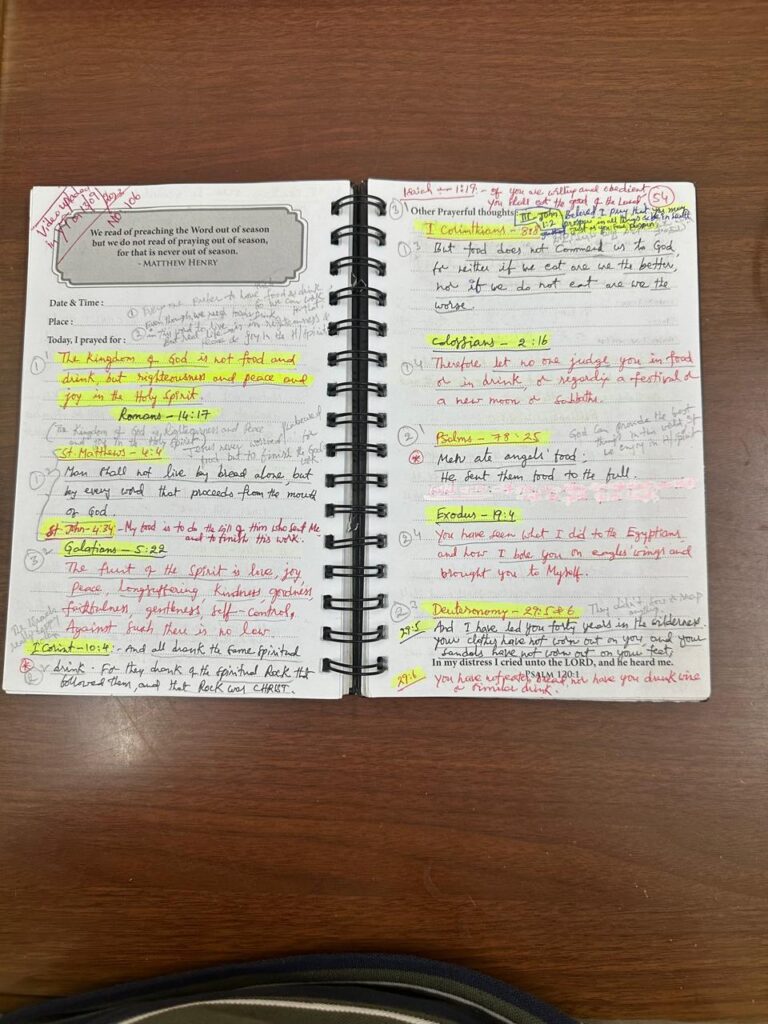 Video uploaded
No 106
We read of preaching the Word out of season
but we do not read of praying out of season,
for that is never out of season.
- MATTHEW HENRY
Date & Time :
Place :
Today, I prayed for :
1 The Kingdom of God is not food and
drink, but righteousness and peace and
joy in the Holy Spirit.
Romans - 14:17
and joy in the Holy Spirit)
St. Matthews - 4:4
1 2 Man shall not live by bread alone, but
by every word that proceeds from the mouth
of God.
St John - 4:34 - My food is to do the will of Him who sent Me
and to finish this work.
3 2 Galatians - 5:22
The fruit of the Spirit is love, joy
Peace, Longsuffering, Kindness, goodness,
faithfulness, gentleness, self-control,
Against Such there is no law.
I Corint - 10:4 - And all drank the same Spiritual
drink. For they drank of the Spiritual Rock that
followed them, and that Rock was CHRIST.
Isaiah - 1:19 - If you are willing and obedient
You shall eat the good of the Land
54
3 1 Other Prayerful thoughts
III - John 1:2 Beloved I pray that you may
prosper in all things & be in health
I Corinthians - 8:8
1 3 But food does not Commend us to God,
for neither if we eat are we the better,
nor if we do not eat are we the
worse.
Colossians - 2:16
1 4 Therefore let no one judge you in food
or in drink, or regarding a festival or
a new moon or Sabbaths.
2 1 Psalms - 78:25
God can provide the best
Men ate angels' food;
He sent them food to the full.
Exodus - 19:4
2 4 You have seen what I did to the Egyptians
and how I bore you on eagles' wings and
brought you to Myself.
2 3 Deuteronomy - 29:5 & 6
They didn't sow & reap
anything
29:5 And I have led you forty years in the wilderness.
your clothes have not worn out on you and your
sandals have not worn out on your feet,
In my distress I cried unto the LORD, and he heard me.
PSALM 120:1
29:6 You have not eaten bread nor have you drunk wine
or similar drink.